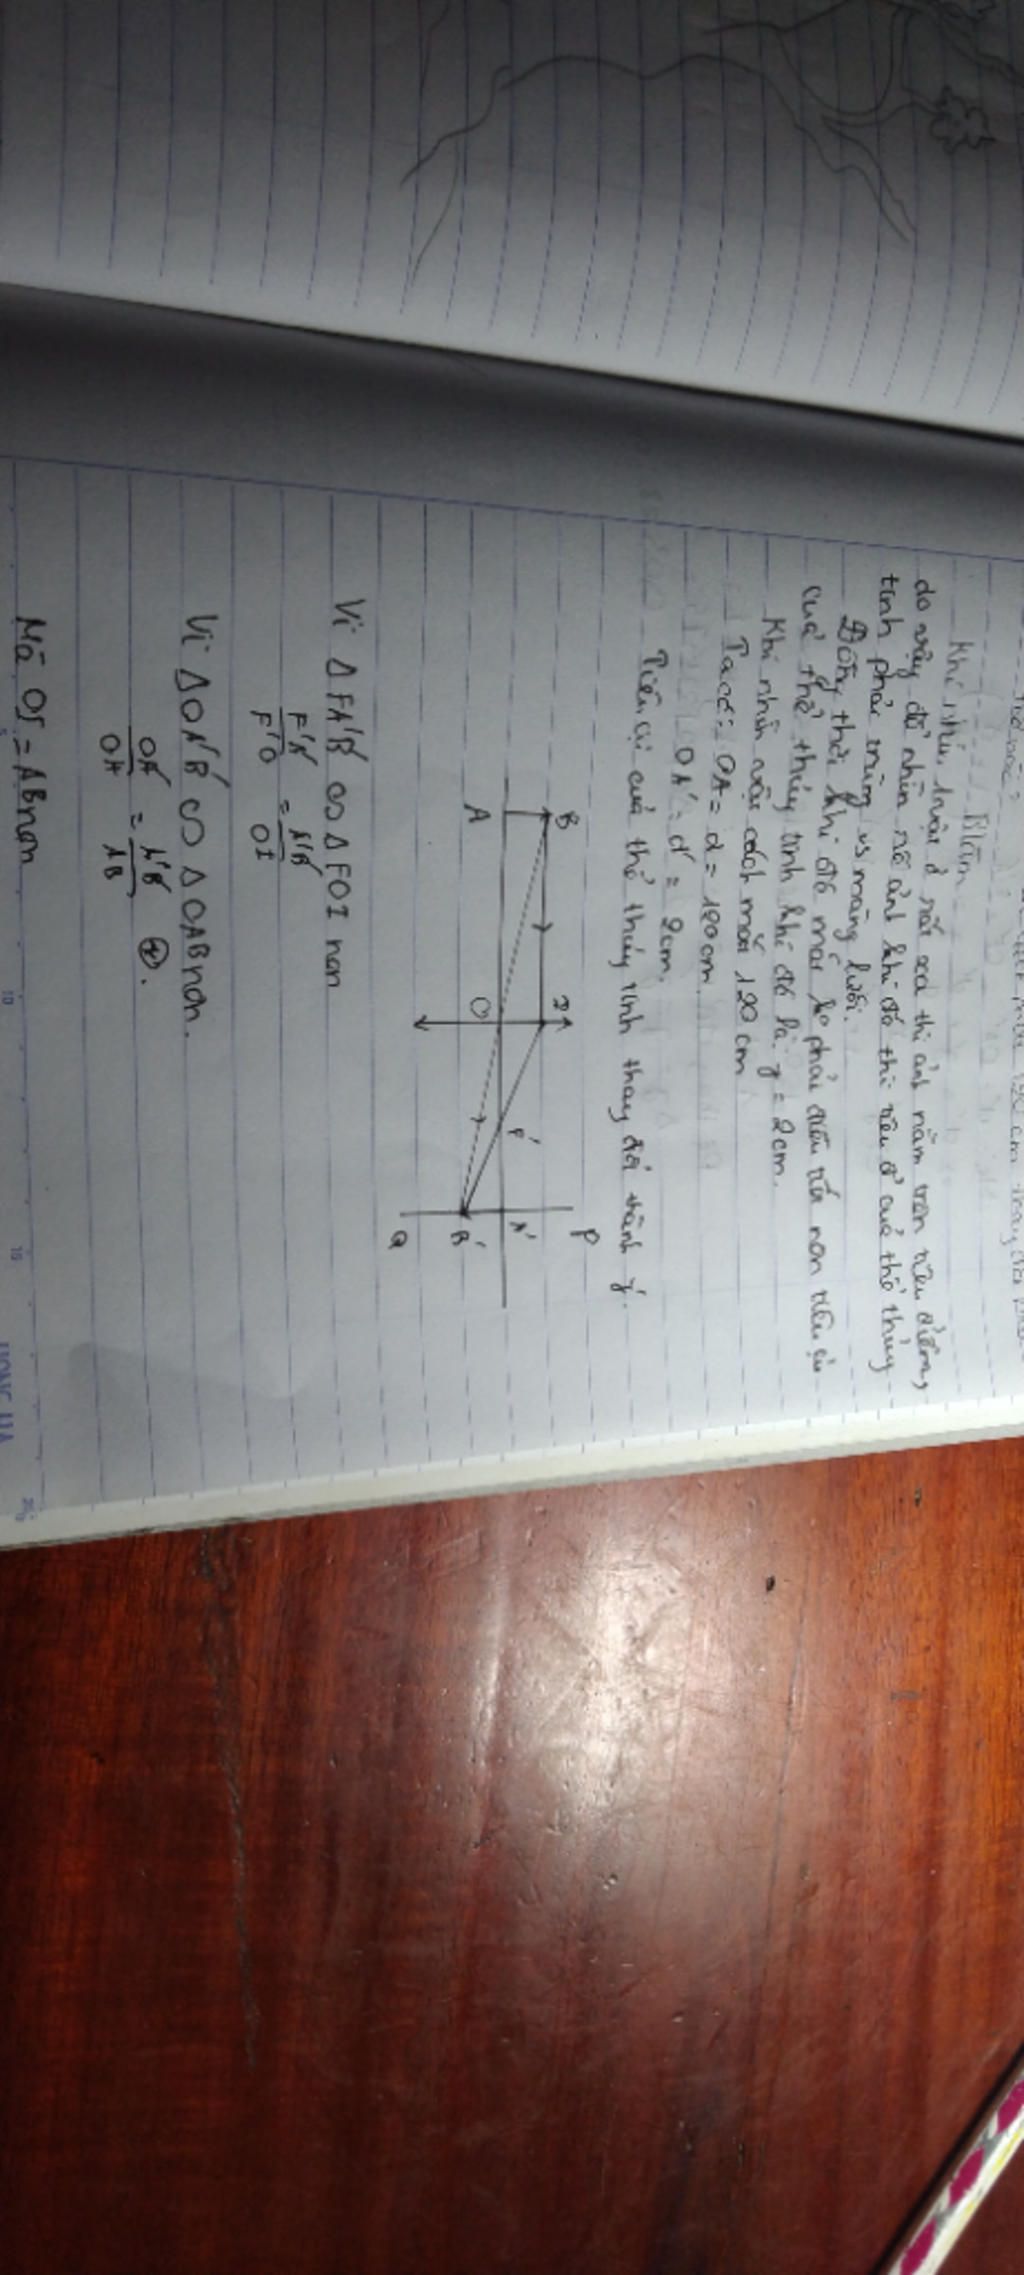 Bläm
Khi nhìn vật ở rất xa thì ảnh nằm trên tiêu điểm,
do vậy để nhìn rõ ảnh khi đó thì tiêu cự của thể thủy
tinh phải trùng vs màng lưới.
Đồng thời khi đó mắt ko phải điều tiết nên tiêu cự
của thể thủy tinh khi đó là f = 2cm.
Khi nhìn vật cách mắt 120 cm
Ta có: OA = d = 120 cm.
OA' = d' = 2cm.
Tiêu cự của thể thủy tinh thay đổi thành f'.
B I P
A O F' A'
B'
Q
Vì Δ FA'B' ∽ Δ FOI nên
F'A'/F'O = A'B'/OI
Vì ΔOA'B' ∽ Δ OAB nên.
OA'/OA = A'B'/AB
Mà OI = AB nên
HONG HA
10 15